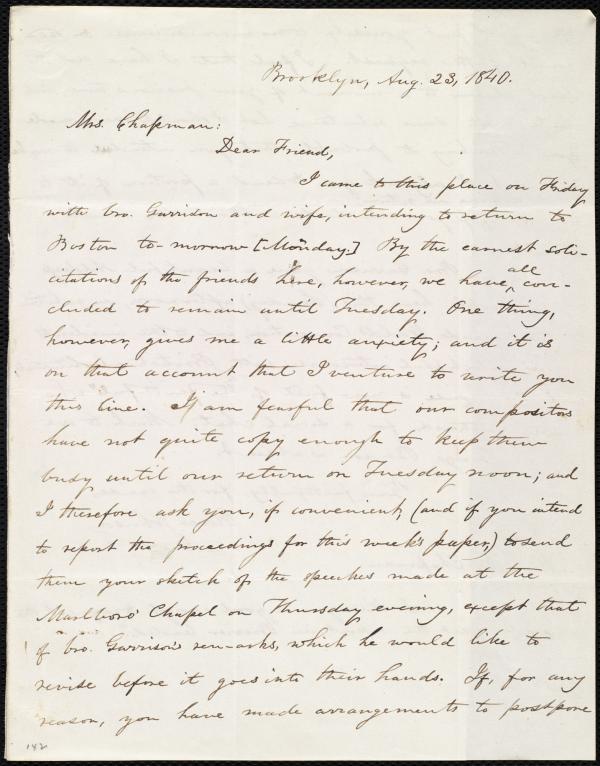 Brooklyn, Aug. 23, 1840.
Mrs. Chapman:
Dear Friend,
I came to this place on Friday
with bro. Garrison and wife, intending to return to
Boston to-morrow [Monday.] By the earnest soli-
citations of the friends here, however, we have all con-
cluded to remain until Tuesday. One thing,
however, gives me a little anxiety; and it is
on that account that I venture to write you
this line. I am fearful that our compositors
have not quite copy enough to keep them
busy until our return on Tuesday noon; and
I therefore ask you, if convenient, (and if you intend
to report the proceedings for this week's paper,) to send
them your sketch of the speeches made at the
Marlboro' Chapel on Thursday evening, except that
of bro. Garrison's remarks, which he would like to
revise before it goes into their hands. If, for any
reason, you have made arrangements to postpone
142